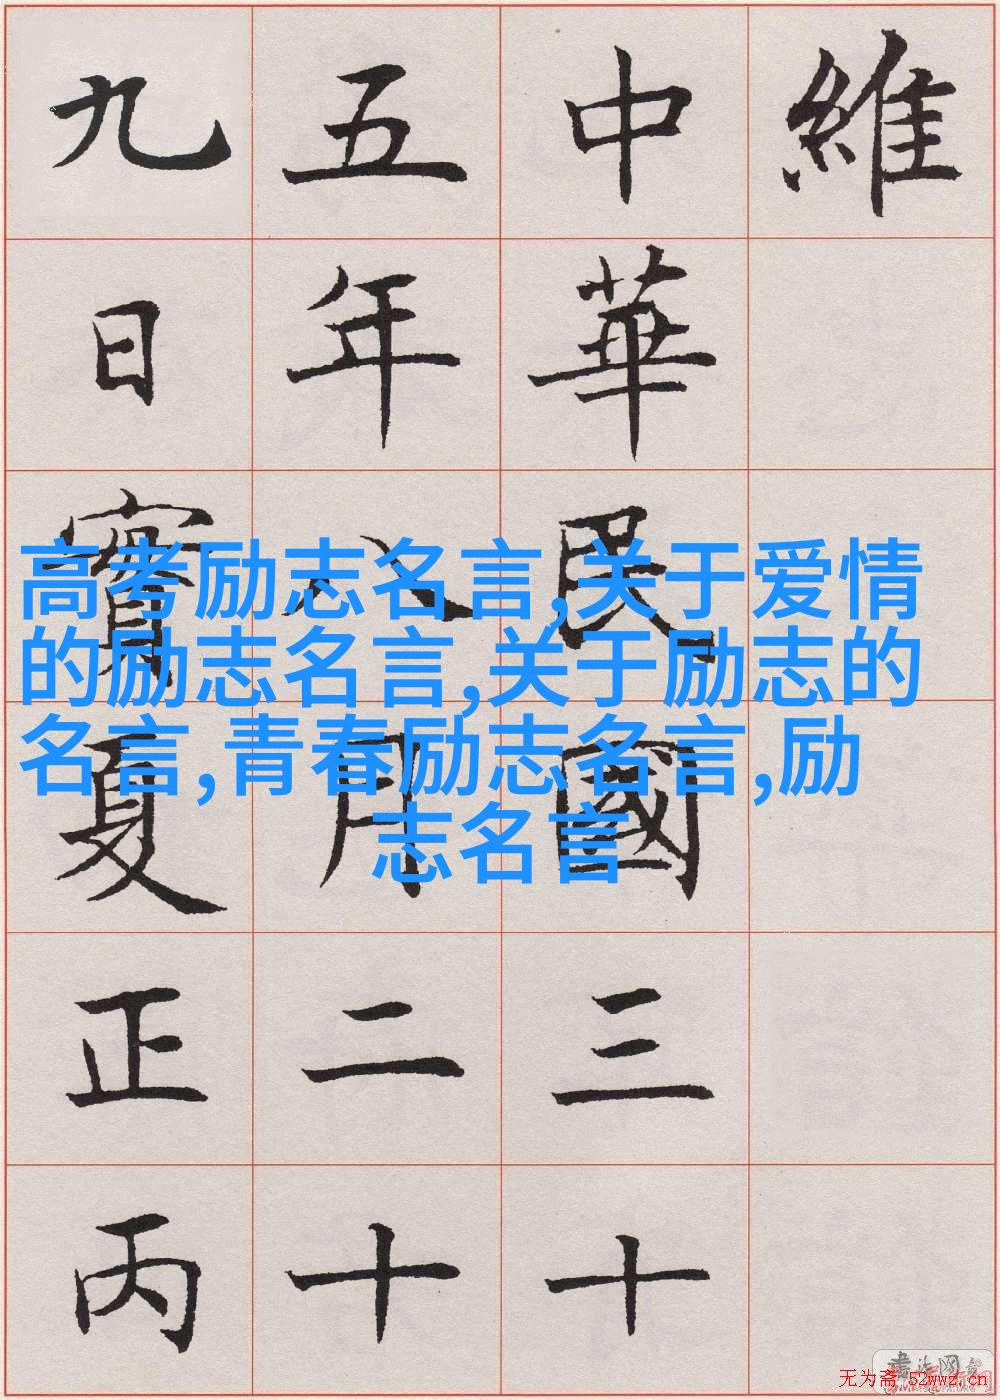 維
中華民國三十
五年八月二十
九日實夏正丙
高考励志名言,关于爱情
的励志名言,关于励志的
名言,青春励志名言,励
志名言
无为斋 52wwz.cn